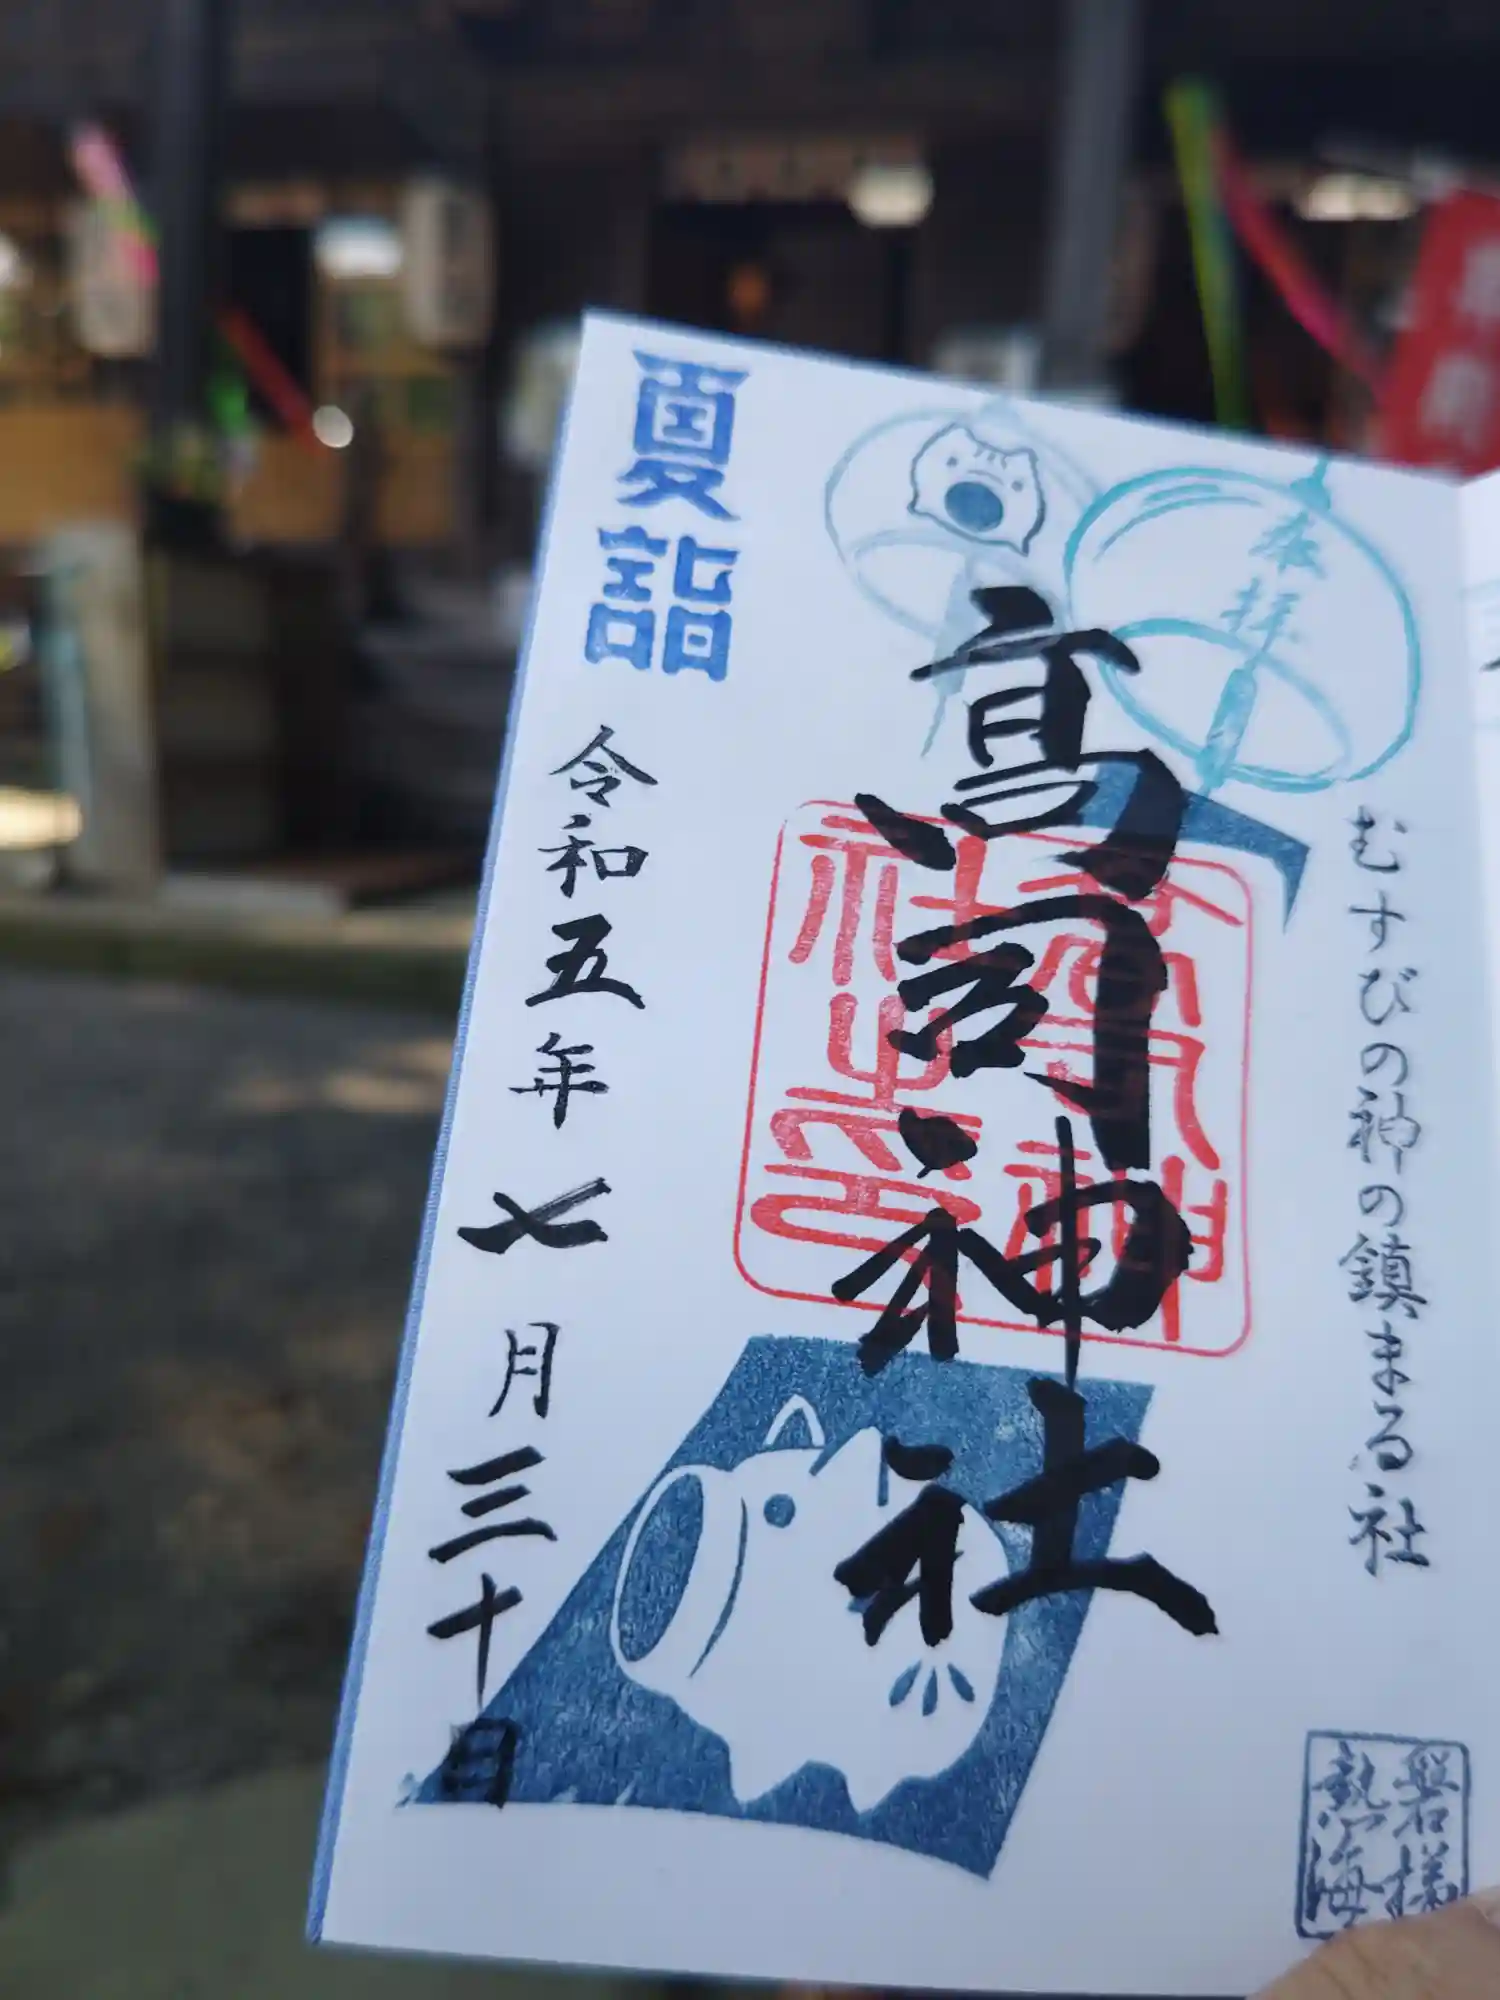 奉拝
むすびの神の鎮まる社
高司神社
高司神社之印
夏詣
令和五年七月三十日
磐梯
熱海